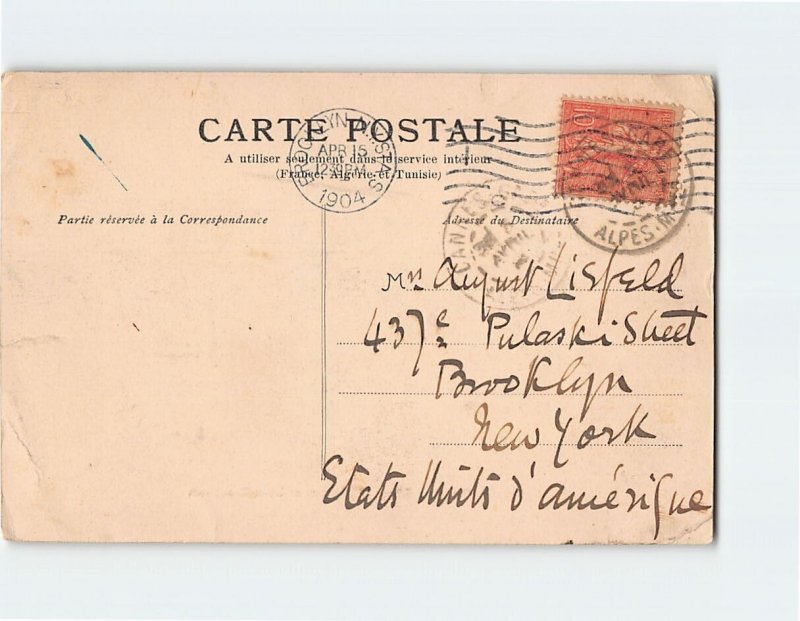 CARTE POSTALE
A utiliser seulement dans le service intérieur
(France, Algérie et Tunisie)
BROOKLYN N.Y. STA.
APR 15
12 30 PM
1904
10
CANNES
AVRIL
ALPES-M
Partie réservée à la Correspondance
Adresse du Destinataire
Mr. August Lisfeld
437e Pulaski Street
Brooklyn
New York
Etats Units d'amérique